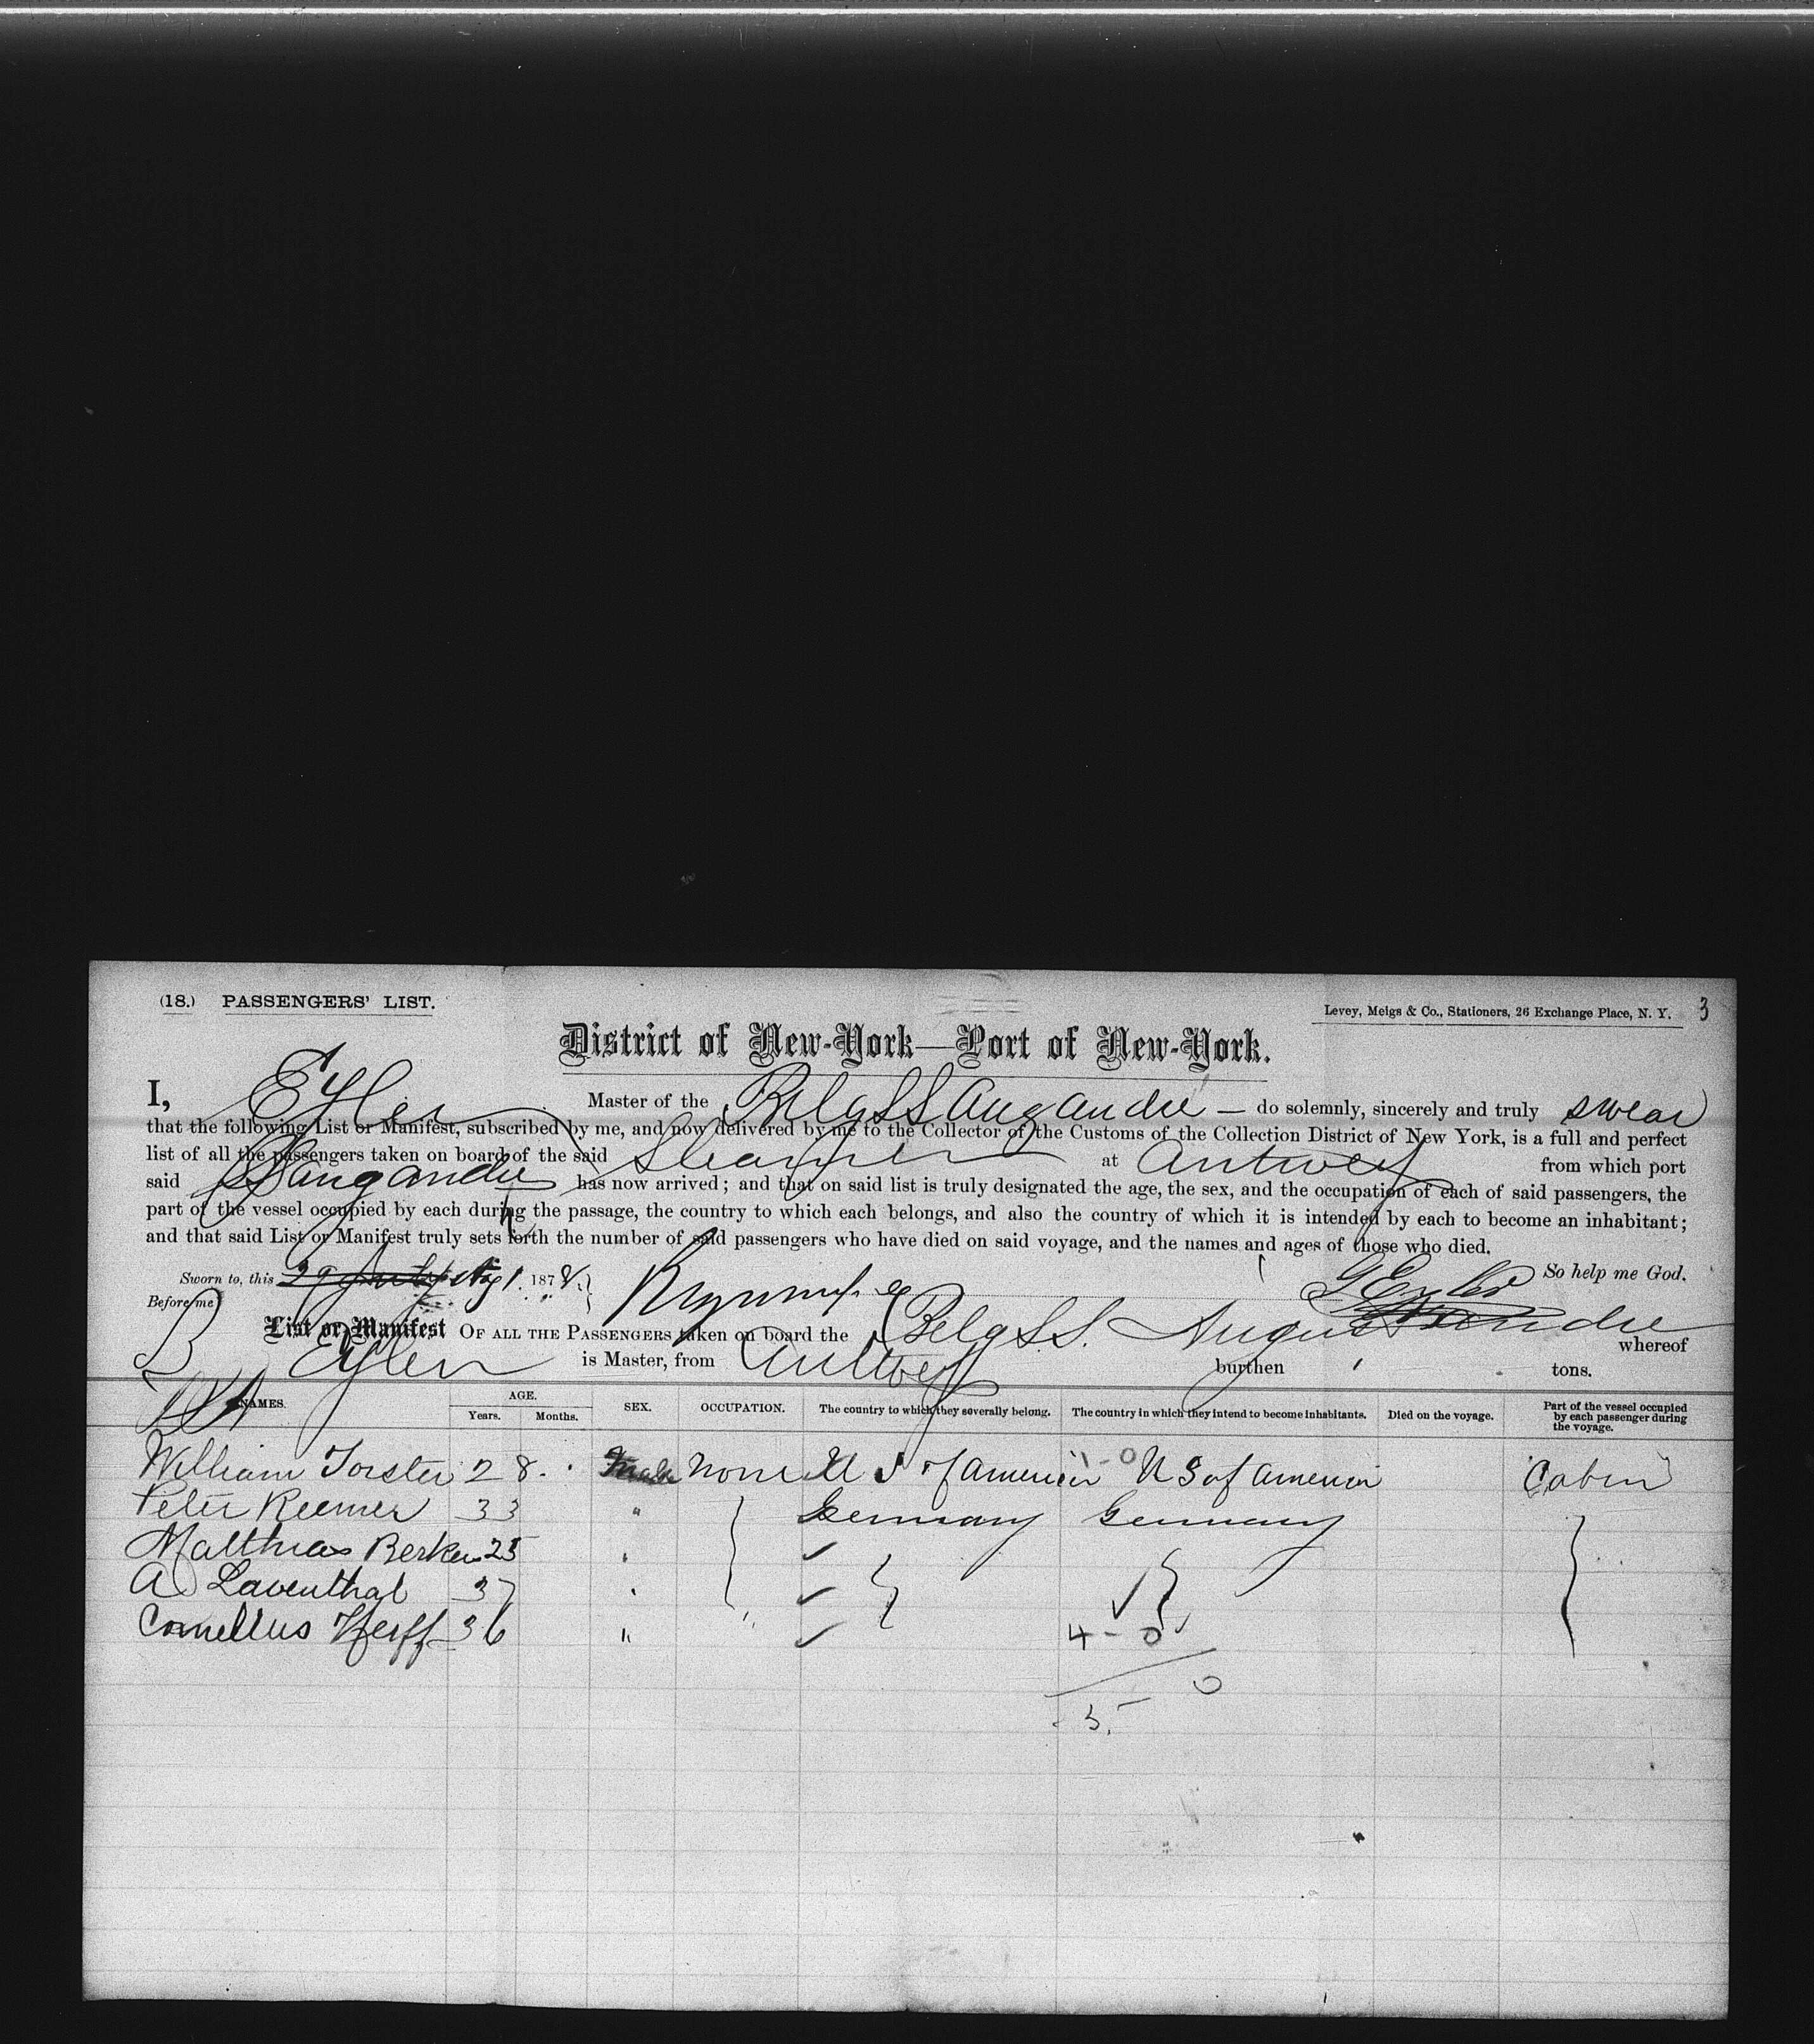 (18.) PASSENGERS' LIST. Levey, Meigs & Co., Stationers, 26 Exchange Place, N. Y. 3
District of New-York—Port of New-York.
I, Eyler Master of the Belg SS Aug Andre — do solemnly, sincerely and truly swear
that the following List or Manifest, subscribed by me, and now delivered by me to the Collector of the Customs of the Collection District of New York, is a full and perfect
list of all the passengers taken on board of the said Steamer at Antwerp from which port
said SS Aug Andre has now arrived; and that on said list is truly designated the age, the sex, and the occupation of each of said passengers, the
part of the vessel occupied by each during the passage, the country to which each belongs, and also the country of which it is intended by each to become an inhabitant;
and that said List or Manifest truly sets forth the number of said passengers who have died on said voyage, and the names and ages of those who died.
So help me God.
Sworn to, this Aug 1. 1878. G Eyler
Before me
List or Manifest OF ALL THE PASSENGERS taken on board the Belg S.S. August Andre whereof
Eyler is Master, from Antwerp burthen tons.
NAMES. AGE. Years. Months. SEX. OCCUPATION. The country to which they severally belong. The country in which they intend to become inhabitants. Died on the voyage. Part of the vessel occupied by each passenger during the voyage.
William Forster 28. Male None U S of America 1-0 U S of America Cabin
Peter Reemer 33 " Germany Germany
Matthias Berker 25 "
A Laventhal 37 "
Cornelius 36 " 4-0
0
5.